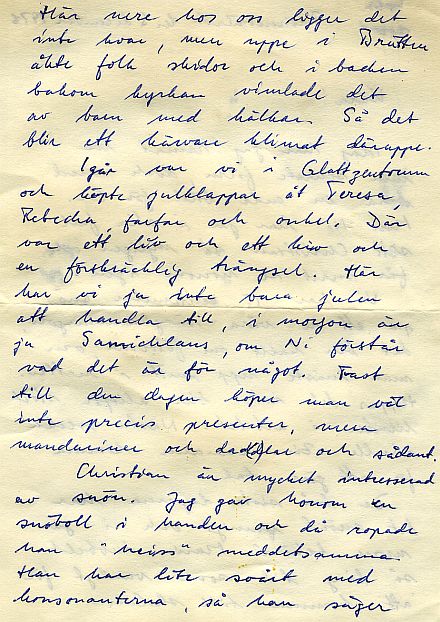 Här nere hos oss ligger det
inte kvar, men uppe i Brütten
åkte folk skidor och i backen
bakom kyrkan vimlade det
av barn med kälkar. Så det
blir ett kärvare klimat däruppe.
Igår var vi i Glattzentrum
och köpte julklappar åt Teresa,
Rebecka, farfar och onkel. Där
var ett liv och ett kiv och
en förskräcklig trängsel. Här
har vi ju inte bara julen
att handla till, i morgon är
ju Samichlaus, om Ni förstår
vad det är för något. Fast
till den dagen köper man väl
inte precis presenter, mera
mandariner och dad(d)lar och sådant.
Christian är mycket intresserad
av snön. Jag gav honom en
snöboll i handen och då ropade
han "heiss" meddetsamma.
Han har lite svårt med
konsonanterna, så han säger